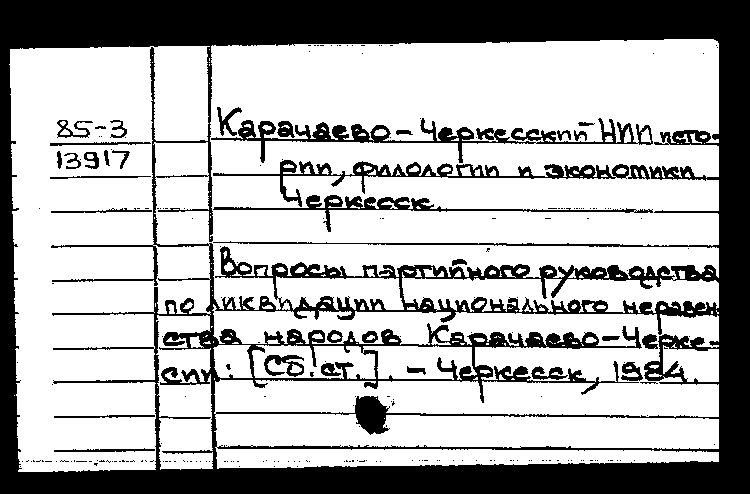 85-3
13917
Карачаево-Черкесский НИИ исто-
рии, филологии и экономики.
Черкесск.
Вопросы партийного руководства
по ликвидации национального неравен-
ства народов Карачаево-Черке-
сии: [Сб. ст.]. - Черкесск, 1984.